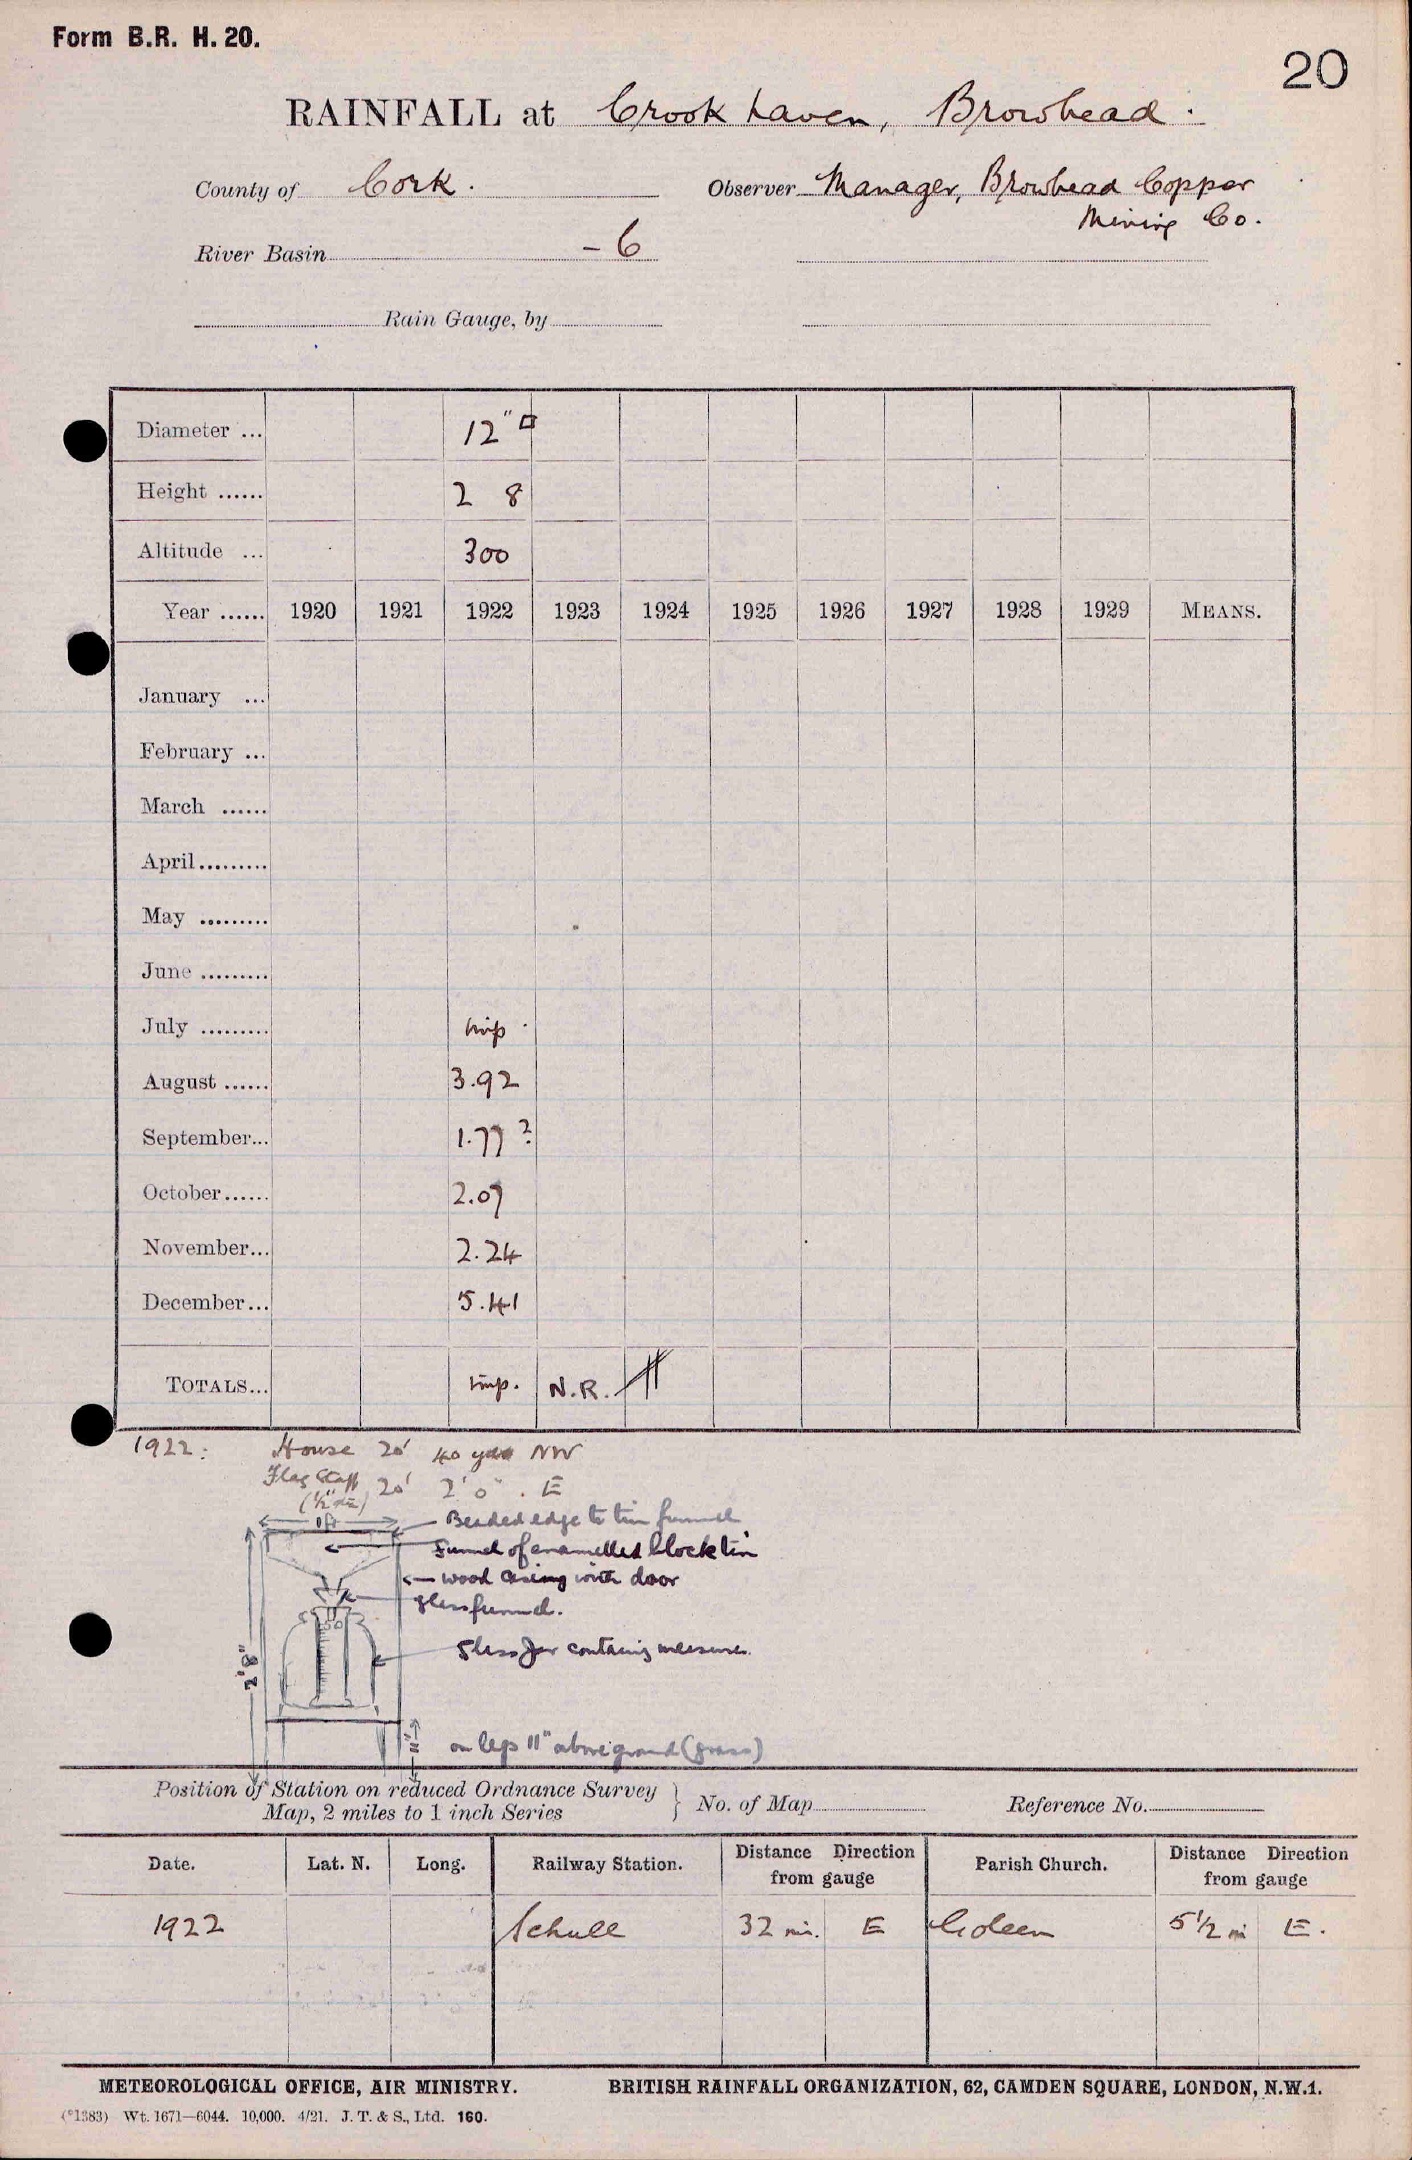 Form B.R. H. 20.
20
RAINFALL at Crookhaven, Browhead.
County of Cork.
Observer Manager, Browhead Copper
Mining Co.
River Basin -6
Rain Gauge, by
Diameter ... 12" □
Height ...... 2 8
Altitude ... 300
Year ...... 1920 1921 1922 1923 1924 1925 1926 1927 1928 1929 MEANS.
January ...
February ...
March ......
April.........
May .........
June .........
July ......... Imp.
August ...... 3.92
September... 1.77 ?
October...... 2.07
November... 2.24
December... 5.41
TOTALS... Imp. N.R.
1922: House 20' 40 yds NW
Flag Staff 20' 2' 0" . E
Beaded edge to tin funnel
Funnel of enamelled block tin
wood casing with door
glass funnel.
Glass Jar containing measure.
2' 8"
11"
on legs 11" above ground (grass)
Position of Station on reduced Ordnance Survey
Map, 2 miles to 1 inch Series
No. of Map
Reference No.
Date. Lat. N. Long. Railway Station. Distance Direction from gauge Parish Church. Distance Direction from gauge
1922 Schull 32 mi. E Goleen 5 1/2 mi E.
METEOROLOGICAL OFFICE, AIR MINISTRY. BRITISH RAINFALL ORGANIZATION, 62, CAMDEN SQUARE, LONDON, N.W.1.
(*1383) Wt. 1671—6044. 10,000. 4/21. J. T. & S., Ltd. 160.